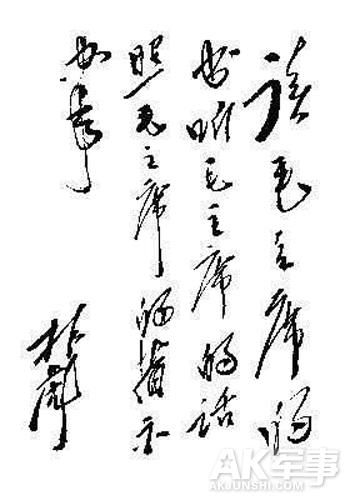 读毛主席的
书听毛主席的话
照毛主席的指示
办事
林彪
AK军事
AKJUNSHI.COM